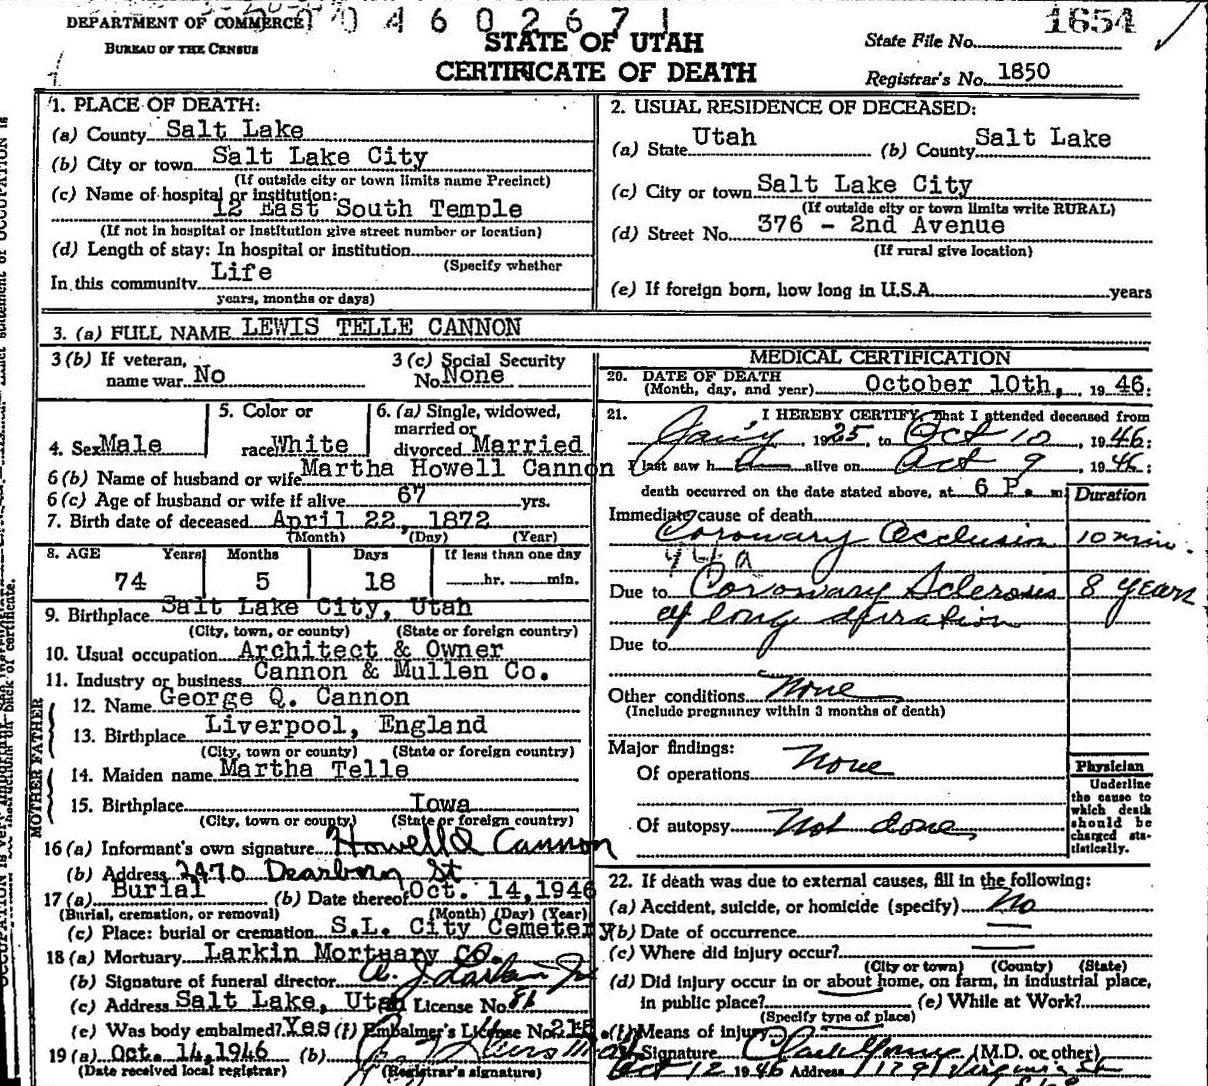 DEPARTMENT OF COMMERCE
BUREAU OF THE CENSUS
0 4 6 0 2 6 7 1
STATE OF UTAH
CERTIFICATE OF DEATH
1654
State File No.
Registrar's No. 1850
1. PLACE OF DEATH:
(a) County Salt Lake
(b) City or town Salt Lake City
(If outside city or town limits name Precinct)
(c) Name of hospital or institution:
12 East South Temple
(If not in hospital or institution give street number or location)
(d) Length of stay: In hospital or institution
(Specify whether
In this community Life
years, months or days)
2. USUAL RESIDENCE OF DECEASED:
(a) State Utah (b) County Salt Lake
(c) City or town Salt Lake City
(If outside city or town limits write RURAL)
(d) Street No. 376 - 2nd Avenue
(If rural give location)
(e) If foreign born, how long in U.S.A. years
3. (a) FULL NAME LEWIS TELLE CANNON
3 (b) If veteran, name war No
3 (c) Social Security No. None
4. Sex Male
5. Color or race White
6. (a) Single, widowed, married or divorced Married
6 (b) Name of husband or wife Martha Howell Cannon
6 (c) Age of husband or wife if alive 67 yrs.
7. Birth date of deceased April 22, 1872
(Month) (Day) (Year)
8. AGE Years Months Days If less than one day
74 5 18 hr. min.
9. Birthplace Salt Lake City, Utah
(City, town, or county) (State or foreign country)
10. Usual occupation Architect & Owner
11. Industry or business Cannon & Mullen Co.
FATHER
12. Name George Q. Cannon
13. Birthplace Liverpool, England
(City, town or county) (State or foreign country)
MOTHER
14. Maiden name Martha Telle
15. Birthplace Iowa
(City, town or county) (State or foreign country)
16 (a) Informant's own signature Howell Q Cannon
(b) Address 2470 Dearborn St
17 (a) Burial (b) Date thereof Oct. 14, 1946
(Burial, cremation, or removal) (Month) (Day) (Year)
(c) Place: burial or cremation S.L. City Cemetery
18 (a) Mortuary Larkin Mortuary Co.
(b) Signature of funeral director
(c) Address Salt Lake, Utah License No. 86
(e) Was body embalmed? Yes (f) Embalmer's License No. 215.
19 (a) Oct. 14, 1946 (b)
(Date received local registrar) (Registrar's signature)
MEDICAL CERTIFICATION
20. DATE OF DEATH
(Month, day, and year) October 10th, 1946:
21. I HEREBY CERTIFY, That I attended deceased from
Jan'y, 1925, to Oct 10, 1946:
I last saw h alive on Oct 9, 1946;
death occurred on the date stated above, at 6 P. m
Duration
Immediate cause of death
Coronary Occlusion 10 min.
94a
Due to Coronary Sclerosis 8 years
of long duration
Due to
Other conditions None
(Include pregnancy within 3 months of death)
Major findings:
Of operations None
Of autopsy Not done
Physician
Underline the cause to which death should be charged statistically.
22. If death was due to external causes, fill in the following:
(a) Accident, suicide, or homicide (specify) No
(b) Date of occurrence
(c) Where did injury occur?
(City or town) (County) (State)
(d) Did injury occur in or about home, on farm, in industrial place,
in public place? (e) While at Work?
(Specify type of place)
(f) Means of injury
Signature (M.D. or other)
Oct 12 1946 Address 1179 Virginia St